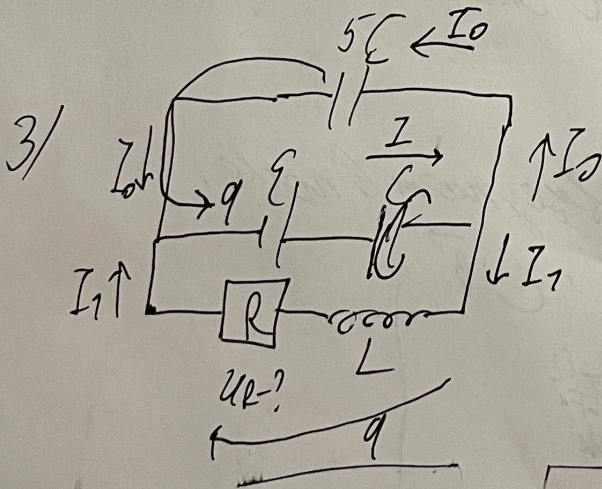 3/
5C I₀
I
I₀ q ℰ C I₀
I₁ I₁
R
L
U_R-?
q